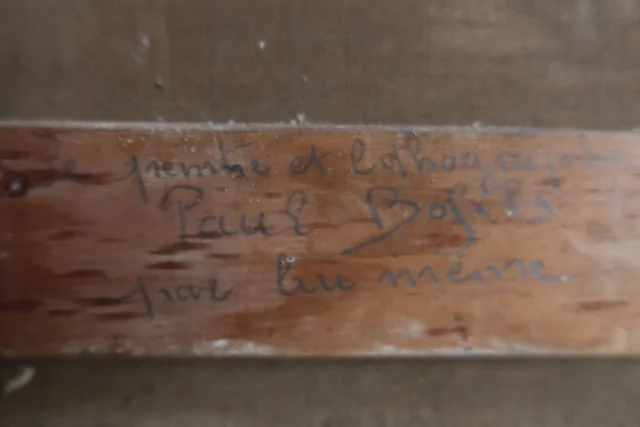 le peintre et lithographe
Paul Bofils
par lui même